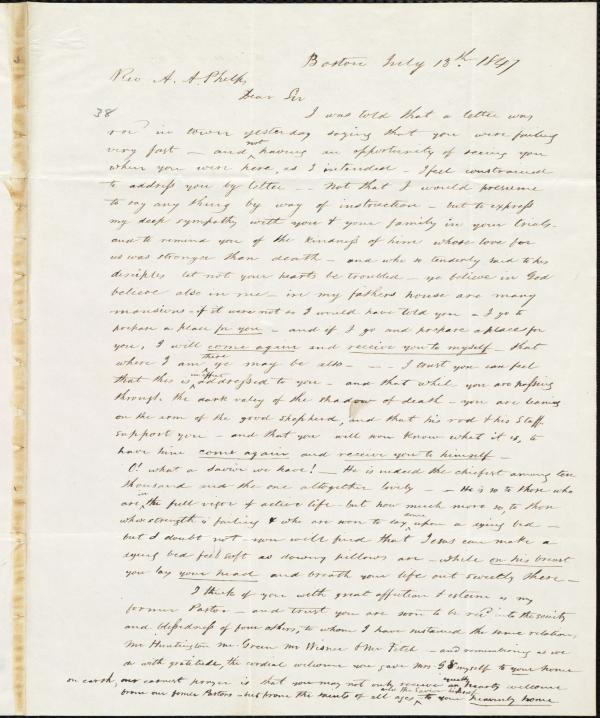 Boston July 13th 1847
Rev A. A. Phelps
Dear Sir
38
I was told that a letter was
recd in town yesterday saying that you were failing
very fast – and not having an opportunity of seeing you
when you were here, as I intended – I feel constrained
to address you by letter – – Not that I would presume
to say any thing by way of instruction – but to express
my deep sympathy with you & your family in your trials –
and to remind you of the kindness of him whose love for
us was stronger than death – and who so tenderly said to his
disciples let not your hearts be troubled – ye believe in God
believe also in me – in my fathers house are many
mansions – if it were not so I would have told you – I go to
prepare a place for you – and if I go and prepare a place for
you, I will come again and receive you to myself – that
where I am there ye may be also – – – I trust you can feel
that this is in effect addressed to you – and that while you are passing
through the dark valey of the shadow of death – you are leaning
on the arm of the good shepherd, and that his rod & his staff
support you – and that you will soon know what it is, to
have him come again and receive you to himself –
O! what a Savior we have! – He is indeed the chiefest among ten
thousand and the one altogether lovely – – He is so to those who
are in the full vigor of active life – but how much more so, to those
whose strength is failing & who are soon to lay upon a dying bed –
but I doubt not – you will find that Jesus can make a
dying bed feel soft as downy pillows are – while on his breast
you lay your head and breath your life out sweetly there –
I think of you with great affection & esteem as my
former Pastor – and trust you are soon to be recd into the society
and blessedness of four others, to whom I have sustained the same relation,
Mr Huntington Mr Green Mr Wisner & Mr Fitch – and remembering as we
do with gratitude, the cordial welcome you gave Mrs S & myself to your home
on earth, our earnest prayer is that you may not only receive an equally hearty welcome
from our former Pastors – but from the saints of all ages and the Savior himself to your heavenly home